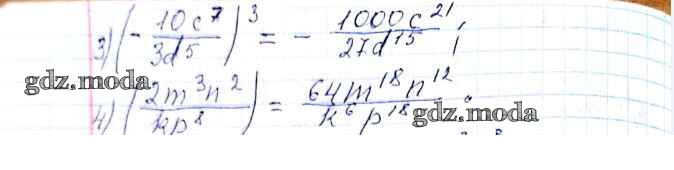 3) (- 10c⁷ / 3d⁵)³ = - 1000c²¹ / 27d¹⁵ ;
gdz.moda
4) (2m³n² / kp⁸) = 64m¹⁸n¹² / k⁶p¹⁸ ;
gdz.moda